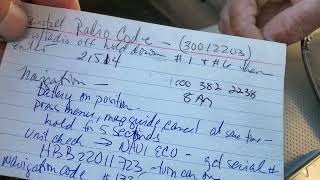 install Radio Code (30012203)
w/radio off hold down #1 & #6 then
enter 21514
Navagation — 1 800 382 2238
Battery on position 8 AM
press menu, map guide, cancel at same time -
hold for 5 seconds
Unit check → NAVI ECU - get serial #
HBB22011723 - turn car
Navigation code #